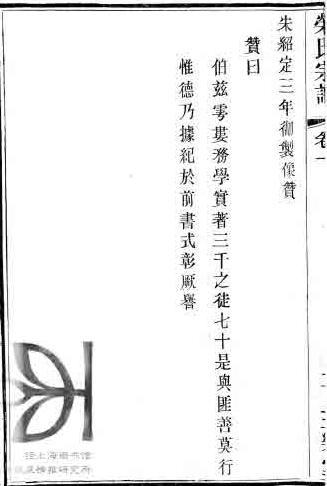 榮氏宗譜 卷一
朱紹定三年御製像贊
贊曰
伯茲雩婁務學實著三千之徒七十是與匪善莫行
惟德乃據紀於前書式彰厥譽
上海圖書館
研究所